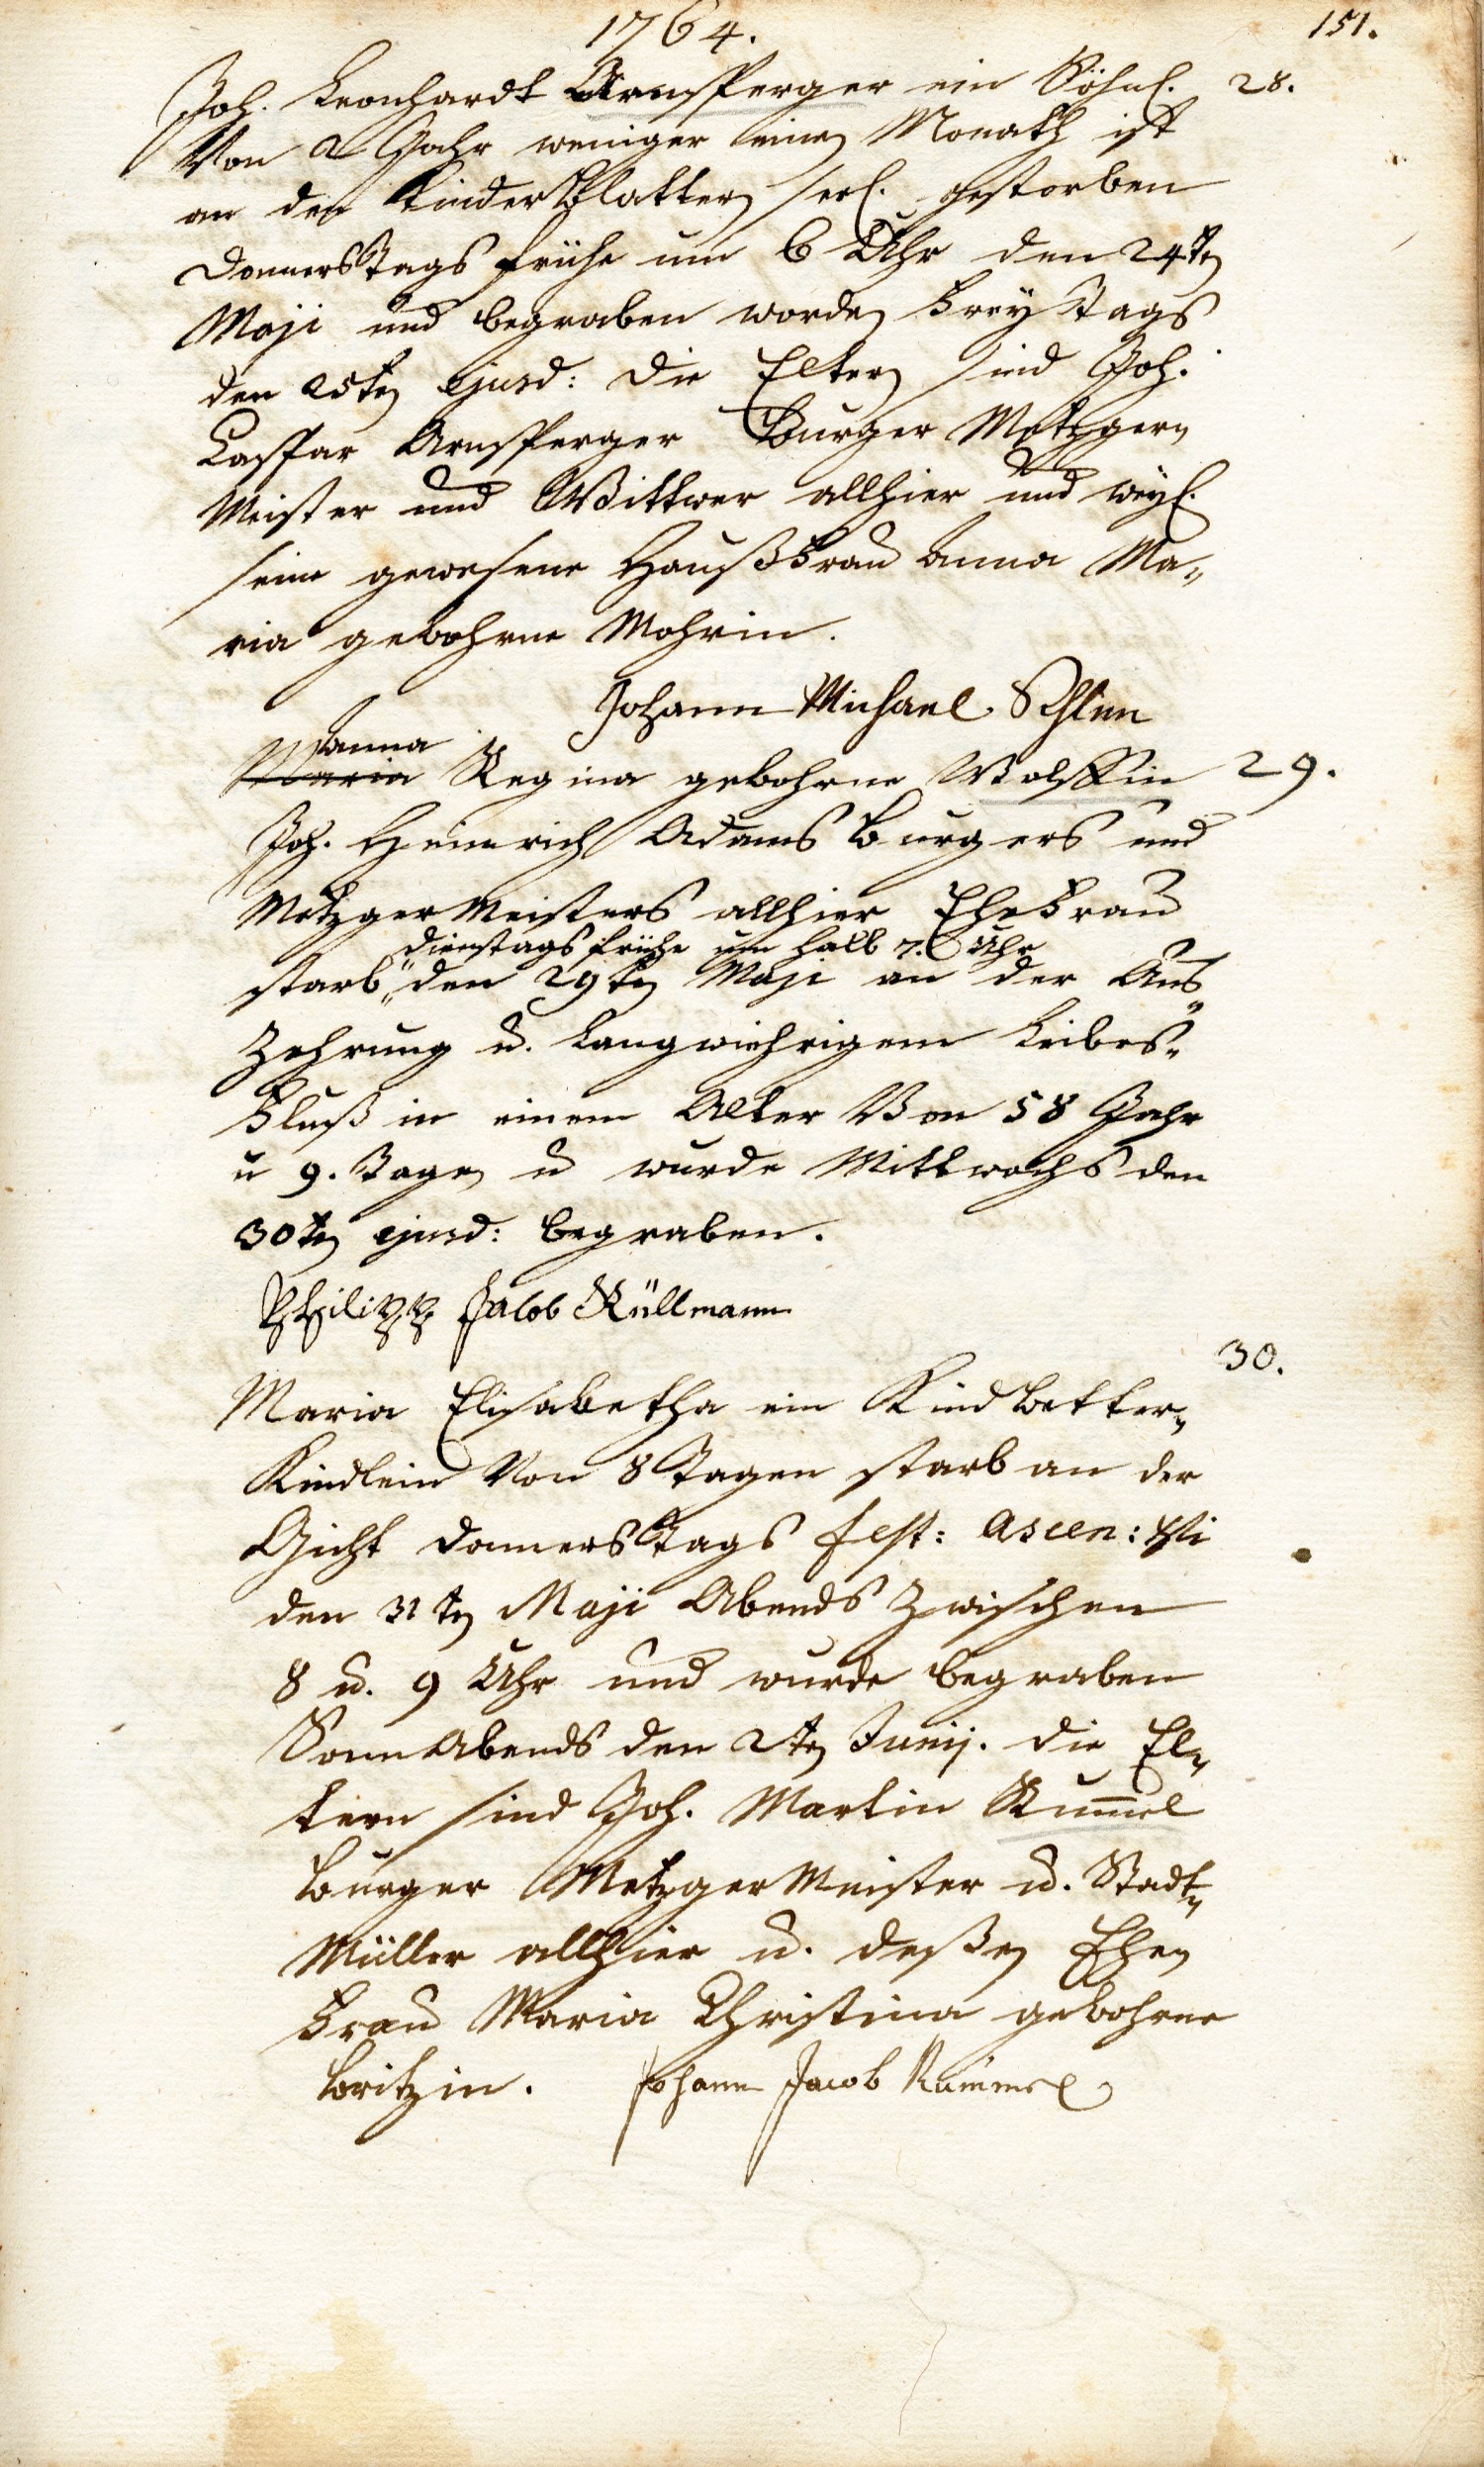 1764.
151.
Joh. Leonhardt Arnsperger ein Söhnl. 28.
Von 2 Jahr weniger einen Monath ist
an den Kinder Blattern seel. gestorben
Donners Tags frühe um 6 Uhr den 24ten
Maji und begraben worden Frey Tags
den 25ten ejusd: Die Eltern sind Joh.
Caspar Arnsperger Burger Metzger„
Meister und Wittwer allhier und weyl.
seine gewesene Hauß Frau Anna Ma„
ria gebohrne Mohrin.
Johann Michael
Anna
Maria Regina gebohrne Wolffin 29.
Joh. Heinrich Adams Burgers und
Metzger Meisters allhier Ehe Frau
Dienstags frühe um halb 7. Uhr
starb „ den 29ten Maji an der Aus„
Zehrung u. Langwiehrigem Leibes„
Fluß in einem Alter Von 58 Jahr
u 9. Tagen u wurde Mittwochs den
30ten ejusd: begraben.
Philipp Jacob Küllmann
30.
Maria Elisabetha ein Kindbetter„
Kindlein Von 8 Tagen starb an der
Gicht Donners Tags fest: Ascen: Xti
den 31ten Maji Abends Zwischen
8 u. 9 Uhr und wurde begraben
Sonn Abends den 2ten Junij. Die El„
tern sind Joh. Martin Kum̅el
Burger Metzger Meister u. Stadt„
Müller allhier u. deßen Ehe„
Frau Maria Christina gebohrne
Britzin. Johann Jacob Kümmel